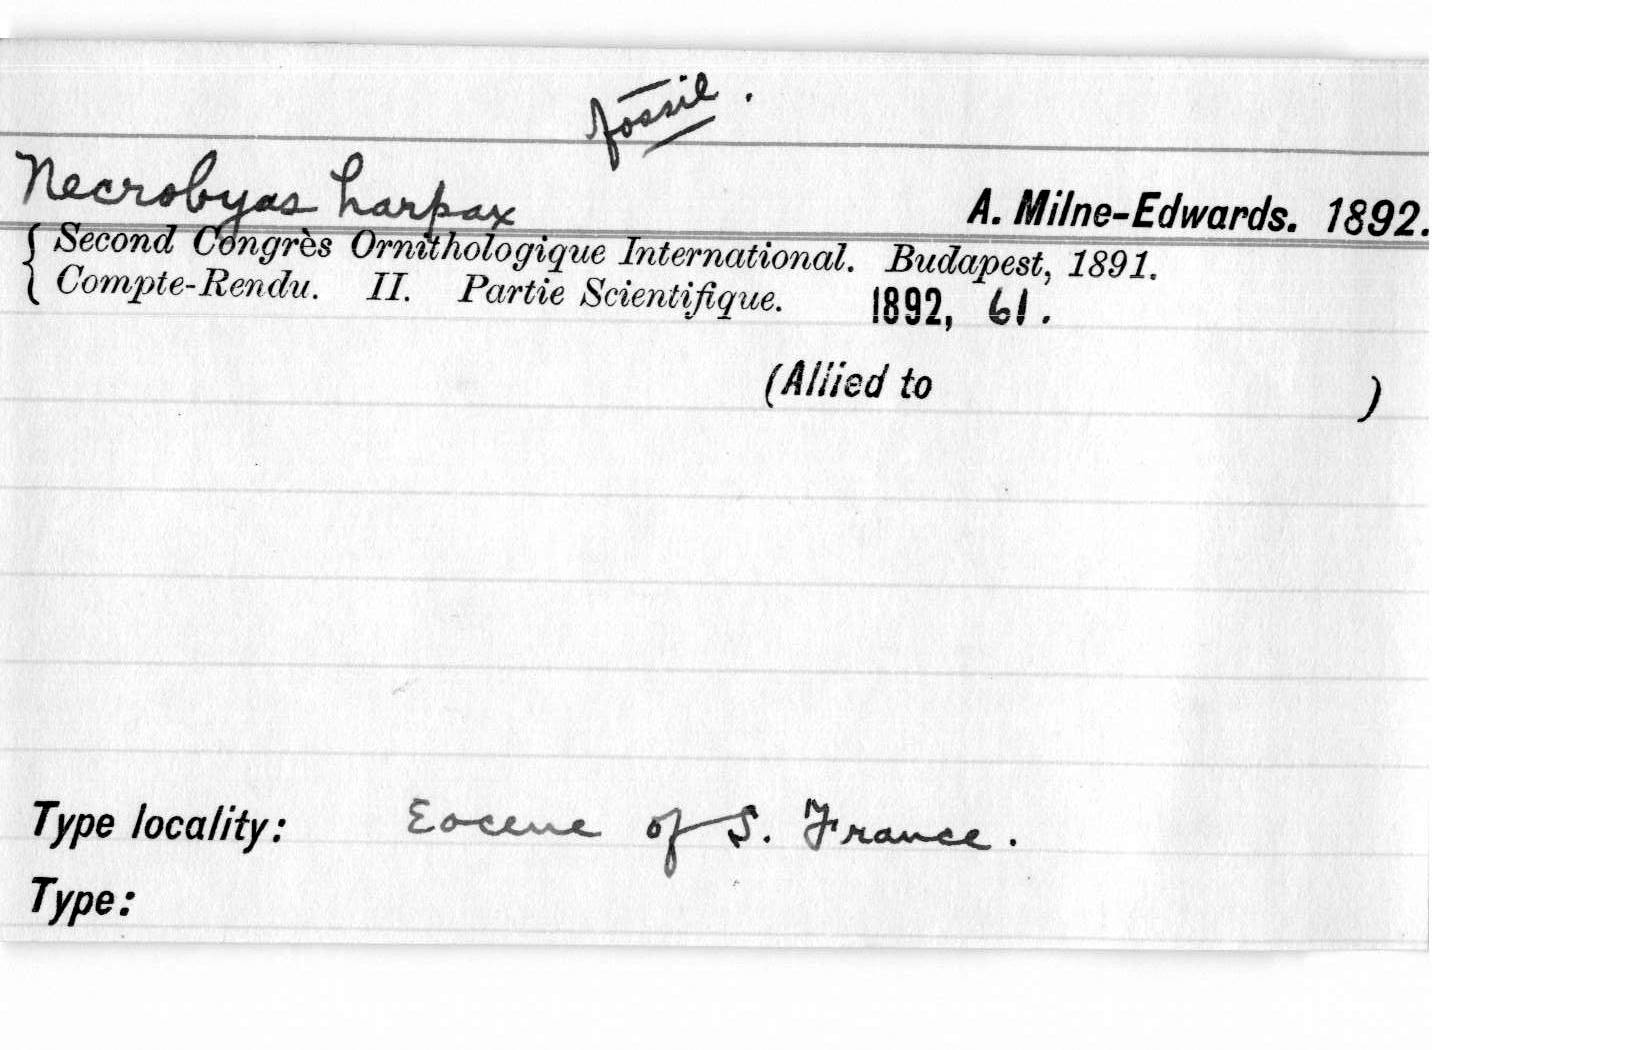 fossil.
Necrobyas harpax A. Milne-Edwards. 1892.
{ Second Congrès Ornithologique International. Budapest, 1891.
Compte-Rendu. II. Partie Scientifique. 1892, 61.
(Allied to )
Type locality: Eocene of S. France.
Type: